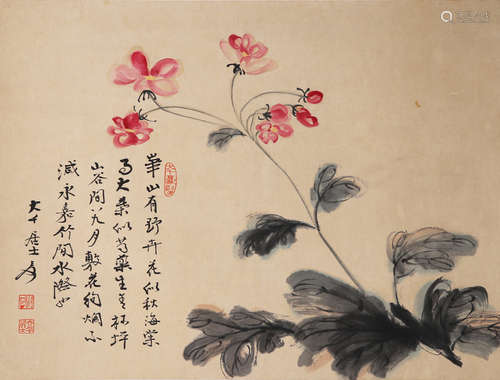 華山有野卉花似秋海棠
而大葉似芍藥生蒼林坪
山谷間八九月敷花絢爛不
減永嘉竹間水際也
大千居士爰